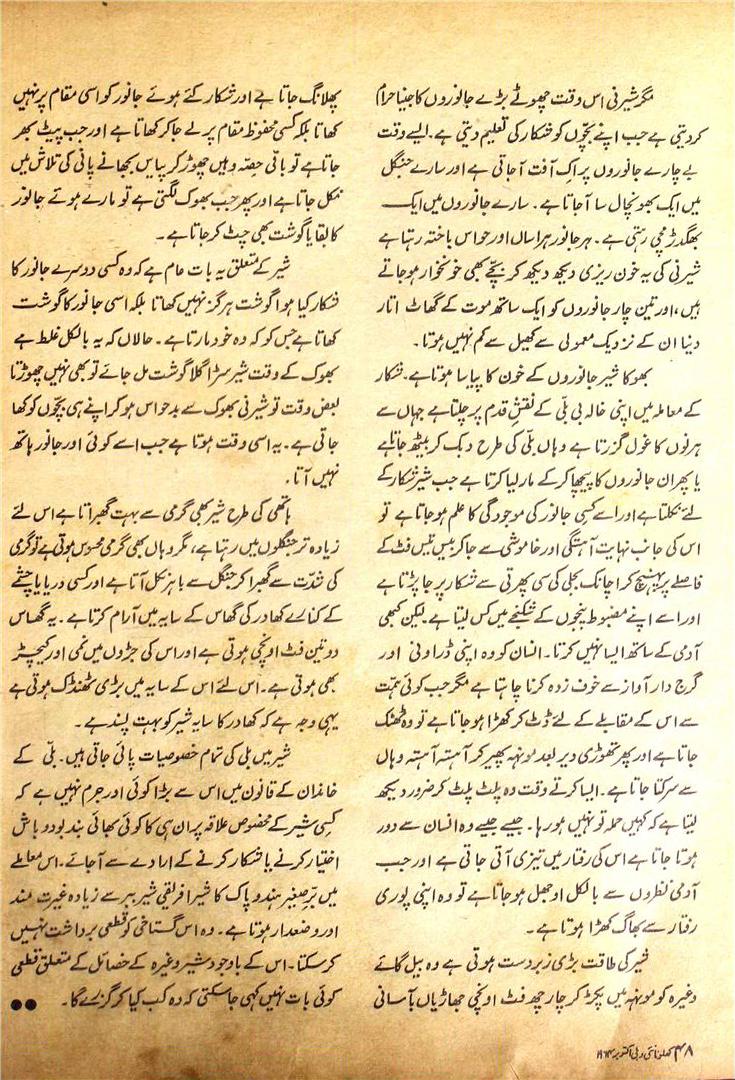 مگر شیرنی اس وقت چھوٹے بڑے جانوروں کا جینا حرام
کر دیتی ہے جب اپنے بچّوں کو شکار کی تعلیم دیتی ہے۔ ایسے وقت
بے چارے جانوروں پر اک آفت آجاتی ہے اور سارے جنگل
میں ایک بھونچال سا آجاتا ہے۔ سارے جانوروں میں ایک
بھگدڑ مچی رہتی ہے۔ ہر جانور ہراساں اور حواس باختہ رہتا ہے
شیرنی کی یہ خون ریزی دیکھ دیکھ کر بچّے بھی خونخوار ہو جاتے
ہیں، اور تین چار جانوروں کو ایک ساتھ موت کے گھاٹ اتار
دینا ان کے نزدیک معمولی سے کھیل سے کم نہیں ہوتا۔
بھوکا شیر جانوروں کے خون کا پیاسا ہوتا ہے۔ شکار
کے معاملہ میں اپنی خالہ بی بلّی کے نقشِ قدم پر چلتا ہے جہاں سے
ہرنوں کا غول گزرتا ہے وہاں بلّی کی طرح دبک کر بیٹھ جاتا ہے
یا پھر ان جانوروں کا پیچھا کر کے مار لیا کرتا ہے جب شیر شکار کے
لئے نکلتا ہے اور اسے کسی جانور کی موجودگی کا علم ہو جاتا ہے تو
اس کی جانب نہایت آہستگی اور خاموشی سے جا کر بیس تیس فٹ کے
فاصلے پر پہنچ کر اچانک بجلی کی سی پھرتی سے شکار پر جا پڑتا ہے
اور اسے اپنے مضبوط پنجوں کے شکنجے میں کس لیتا ہے لیکن کبھی
آدمی کے ساتھ ایسا نہیں کرتا۔ انسان کو وہ اپنی ڈراونی اور
گرج دار آواز سے خوف زدہ کرنا چاہتا ہے مگر جب کوئی ہمت
سے اس کے مقابلے کے لئے ڈٹ کر کھڑا ہو جاتا ہے تو وہ ٹھٹک
جاتا ہے اور پھر تھوڑی دیر بعد مونہہ پھیر کر آہستہ آہستہ وہاں
سے سرکتا جاتا ہے۔ ایسا کرتے وقت وہ پلٹ پلٹ کر ضرور دیکھ
لیتا ہے کہ کہیں حملہ تو نہیں ہو رہا۔ جیسے جیسے وہ انسان سے دور
ہوتا جاتا ہے اس کی رفتار میں تیزی آتی جاتی ہے اور جب
آدمی نظروں سے بالکل اوجھل ہو جاتا ہے تو وہ اپنی پوری
رفتار سے بھاگ کھڑا ہوتا ہے۔
شیر کی طاقت بڑی زبردست ہوتی ہے وہ بیل گائے
وغیرہ کو مونہہ میں پکڑ کر چار چھ فٹ اونچی جھاڑیاں بآسانی
پھلانگ جاتا ہے اور شکار کئے ہوئے جانور کو اسی مقام پر نہیں
کھاتا بلکہ کسی محفوظ مقام پر لے جا کر کھاتا ہے اور جب پیٹ بھر
جاتا ہے تو باقی حصّہ وہیں چھوڑ کر پیاس بجھانے پانی کی تلاش میں
نکل جاتا ہے اور پھر جب بھوک لگتی ہے تو مارے ہوئے جانور
کا بقایا گوشت بھی چٹ کر جاتا ہے۔
شیر کے متعلق یہ بات عام ہے کہ وہ کسی دوسرے جانور کا
شکار کیا ہوا گوشت ہرگز نہیں کھاتا بلکہ اسی جانور کا گوشت
کھاتا ہے جس کو کہ وہ خود مارتا ہے۔ حالاں کہ یہ بالکل غلط ہے
بھوک کے وقت شیر سڑا گلا گوشت مل جائے تو بھی نہیں چھوڑتا
بعض وقت تو شیرنی بھوک سے بدحواس ہو کر اپنے ہی بچّوں کو کھا
جاتی ہے۔ یہ اسی وقت ہوتا ہے جب اسے کوئی اور جانور ہاتھ
نہیں آتا۔
ہاتھی کی طرح شیر بھی گرمی سے بہت گھبراتا ہے اس لئے
زیادہ تر جنگلوں میں رہتا ہے، مگر وہاں بھی گرمی محسوس ہوتی ہے تو گرمی
کی شدّت سے گھبرا کر جنگل سے باہر نکل آتا ہے اور کسی دریا یا چشمے
کے کنارے کھادر کی گھاس کے سایہ میں آرام کرتا ہے۔ یہ گھاس
دو تین فٹ اونچی ہوتی ہے اور اس کی جڑوں میں نمی اور کیچڑ
بھی ہوتی ہے۔ اس لئے اس کے سایہ میں بڑی ٹھنڈک ہوتی ہے
یہی وجہ ہے کہ کھادر کا سایہ شیر کو بہت پسند ہے۔
شیر میں بلی کی تمام خصوصیات پائی جاتی ہیں۔ بلّی کے
خاندان کے قانون میں اس سے بڑا کوئی اور جرم نہیں ہے کہ
کسی شیر کے مخصوص علاقہ پر ان ہی کا کوئی بھائی بند بود و باش
اختیار کرنے یا شکار کرنے کے ارادے سے آجائے۔ اس معاملے
میں برّصغیر ہند و پاک کا شیر افریقی شیر ببر سے زیادہ غیرت مند
اور وضعدار ہوتا ہے۔ وہ اس گستاخی کو قطعی برداشت نہیں
کر سکتا۔ اس کے باوجود شیر وغیرہ کے خصائل کے متعلق قطعی
کوئی بات نہیں کہی جا سکتی کہ وہ کب کیا کر گزرے گا۔
۴۸ کھلونا نئی دہلی اکتوبر